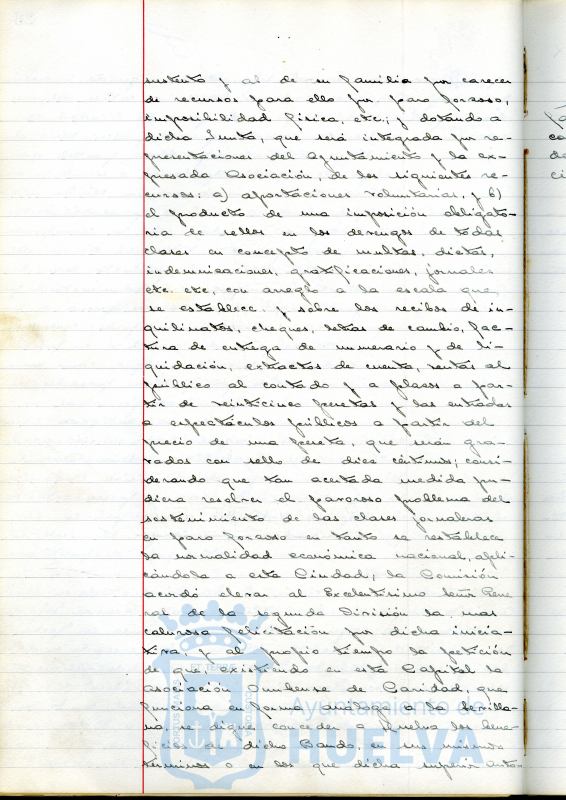 sustento y al de su familia por carecer
de recursos para ello por paro forzoso,
imposibilidad física, etc.; y dotando a
dicha Junta, que será integrada por re-
presentaciones del Ayuntamiento y la ex-
presada Asociación, de los siguientes re-
cursos: a) aportaciones voluntarias, y b)
el producto de una imposición obligato-
ria de sellos en los devengos de todas
clases en concepto de multas, dietas,
indemnizaciones, gratificaciones, jornales
etc. etc, con arreglo a la escala que
se establece y sobre los recibos de in-
quilinatos, cheques, letras de cambio, fac-
tura de entrega de numerario y de li-
quidación, extractos de cuenta, ventas al
público al contado y a plazos a par-
tir de veinticinco pesetas y las entradas
a espectáculos públicos a partir del
precio de una peseta, que serán gra-
vados con sello de diez céntimos; consi-
derando que tan acertada medida pu-
diera resolver el pavoroso problema del
sostenimiento de las clases jornaleras
en paro forzoso en tanto se restablece
la normalidad económica nacional, apli-
cándola a esta Ciudad, la Comisión
acordó elevar al Excelentísimo Señor Gene
ral de la segunda División la mas
calurosa felicitación por dicha inicia-
tiva, y al propio tiempo la petición
de que, existiendo en esta Capital la
Asociación Onubense de Caridad, que
funciona en forma análoga a la Sevilla-
na se digne conceder a Huelva los bene-
ficios de dicho Bando, en sus mismos
términos o en los que dicha superior auto-
Ayuntamiento de
HUELVA